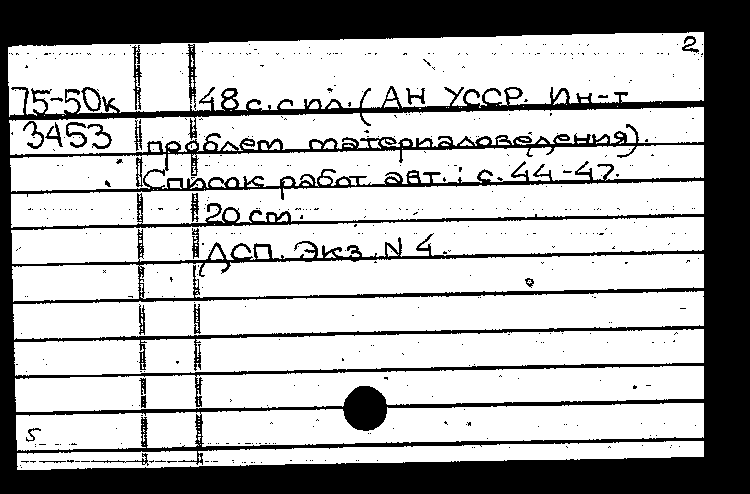 2
75-50к 48 с. с ил. (АН УССР. Ин-т
3453 проблем материаловедения).
Список работ авт.: с. 44-47.
20 см.
ДСП. Экз. N 4.
5